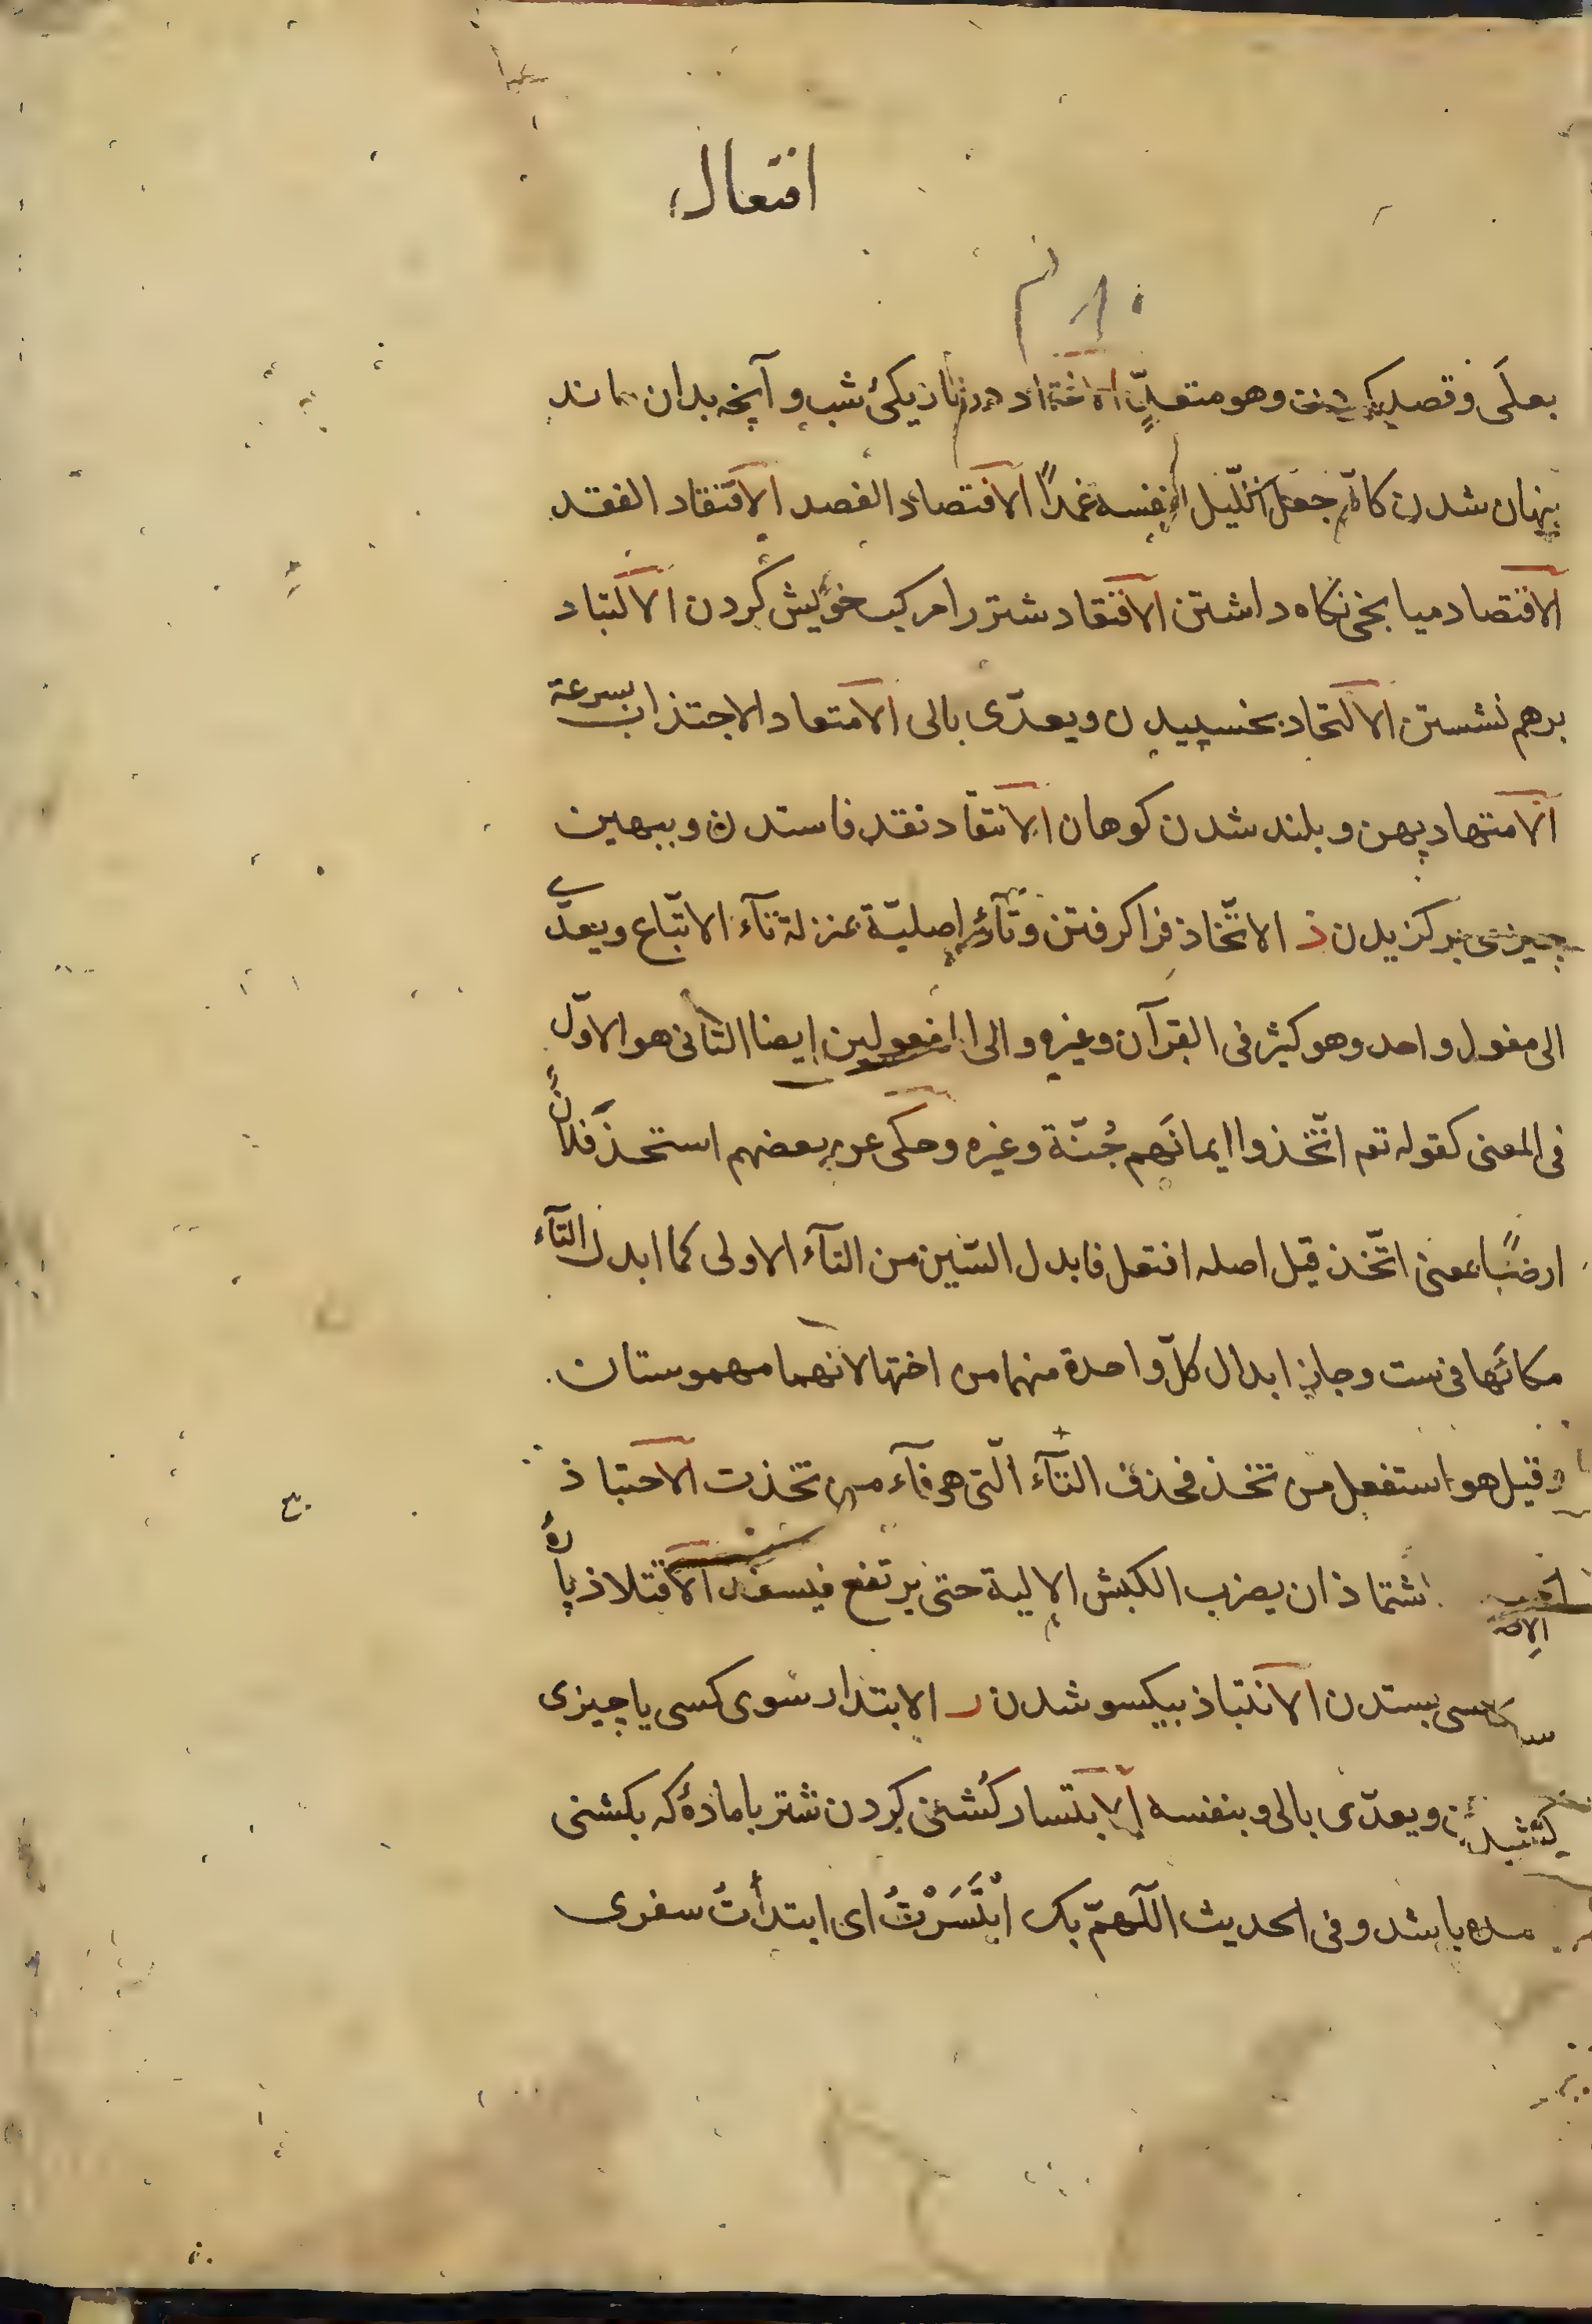 افتعال
بعلی و قصد کردن وهو متعدٍّ الاغتماد در تاریکی شب و آنچه بدان ماند
پنهان شدن کانّه جعل اللیل لنفسه غمدًا الافتصاد الفصد الافتقاد الفقد
الاقتصاد میانجی نکاه داشتن الاقتعاد شتر را مرکب خویش کردن الالتباد
برهم نشستن الالتحاد بخسپیدن ویعدّی بالی الامتعاد الاجتذاب بسرعة
الامتهاد پهن و بلند شدن کوهان الانتقاد نقد فاستدن و ببهین
چیزی برکزیدن ذ الاتّخاذ فرا کرفتن وتآؤه اصلیّة بمنزلة تآء الاتّباع ویعدّی
الی مفعول واحد وهو کثیر فی القرآن وغیره والی المفعولین ایضا الثانی هو الاوّل
فی المعنی کقوله تعم اتّخذوا ایمانَهم جُنّة وغیره وحکی عن بعضهم استخذ فلانٌ
ارضًا بمعنی اتّخذ قیل اصله افتعل فابدل السّین من التآء الاولی کما ابدل التآء
مکانَها فی ست وجاز ابدال کلّ واحدة منهما من اختها لانهما مهموستان
وقیل هو استفعل من تخذ فحذف التآء الّتی هی فآء من تخذت الاحتباذ
اشتماذ ان یضرب الکبش الالیة حتی یرتفع فیسفد الاقتلاذ پارهٔ
کسی بستدن الانتباذ بیکسو شدن ر الابتدار سوی کسی یا چیزی
ویعدّی بالی وبنفسه الابتسار کُشنی کردن شتر با مادهٔ که بکشنی
باشد وفی الحدیث اللّهمّ بک ابْتَسَرْتُ ای ابتدأتُ سفری